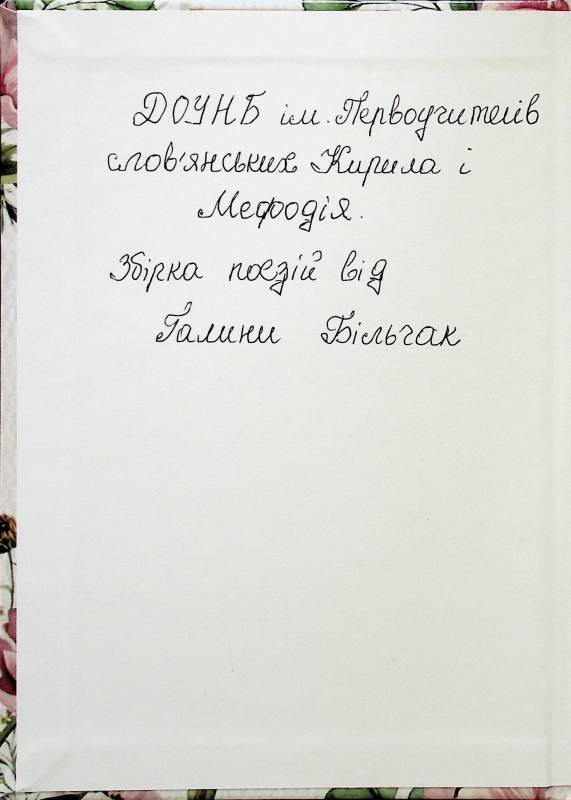 ДОУНБ ім. Первоучителів
слов'янських Кирила і
Мефодія.
Збірка поезій від
Галини Більчак